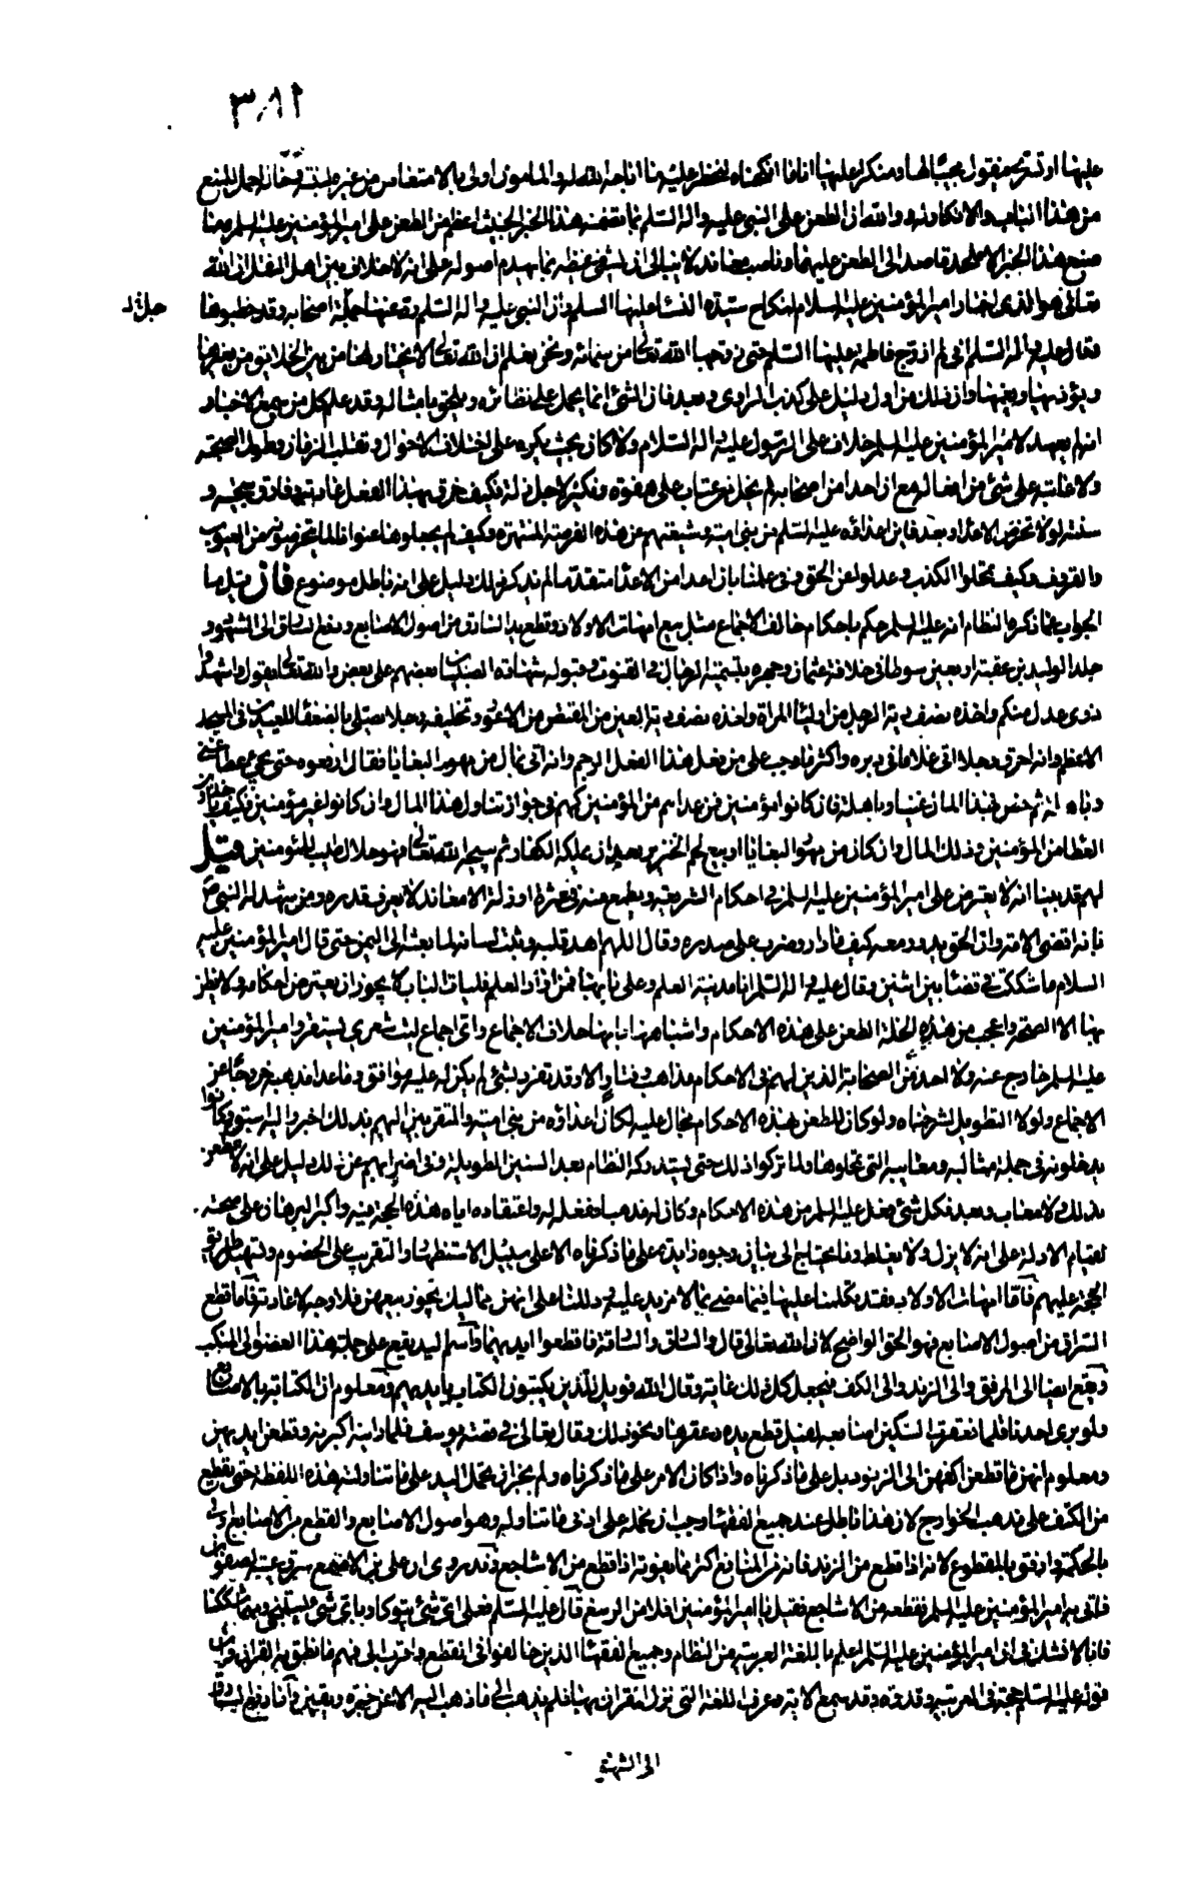 عليها او تسريه فيقول مجيبا لها ومنكرا عليها
من هذا الباب والانكار له ووالله ان الطعن على النبي عليه واله السلم بما تضمنه هذا الخبر الخبيث اعظم من الطعن على امير المؤمنين عليه السلم وما
صنع هذا الخبر الا ملحد قاصد الى الطعن عليهما وناصب معاند لا يبالي ان يشفي غيظه بما يهدم اصوله على انه لا خلاف بين اهل النقل ان الله
تعالى هو الذي اختار امير المؤمنين عليه السلام لنكاح سيدة النسا عليها السلم وان النبي عليه واله السلم دفع عنها جلة اصحابه وقد خطبوها
فقال عليه واله السلم اني لم ازوج فاطمة عليها السلم حتى زوجها الله تعالى من سمائه ونحن نعلم ان الله تعالى لا يختار لها من بين الخلايق من يغيرها
ويؤذيها ويغمها وان ذلك من اول دليل على كذب الراوي وبعد فان الشئ انما يحمل على نظائره ويلحق بامثاله وقد علم كل من سمع الاخبار
انه لم يعهد لامير المؤمنين عليه السلم خلاف على الرسول عليه واله السلام ولا كان بحيث يكره على اختلاف الاحوال وتقلب الزمان وطول الصحبة
ولا عاتبه على شئ من افعاله مع ان احدا من اصحابه لم يخل من عتاب على هفوة ونكير لاجل زلة فكيف خرق بهذا الفعل عادته وفارق سجيته و
سنته لولا تخرص الاعداء وبعد فاين اعداؤه عليه السلم من بني امية وشيعتهم عن هذه الفرصة المنتهزة وكيف لم يجعلوها عنوانا لما يتخرصونه من العيوب
والقروف وكيف تمحلوا الكذب وعدلوا عن الحق وفي علمنا بان احدا من الاعدا متقدما لم يذكر ذلك دليل على انه باطل موضوع فان قيل ما
الجواب عما ذكره النظام انه عليه السلم حكم باحكام خالف الاجماع مثل بيع امهات الاولاد وقطع يد السارق من اصول الاصابع ودفع السارق الى الشهود و
جلد الوليد بن عقبة اربعين سوطا في خلافة عثمان وجهره بتسمية الرجال في القنوت وقبوله شهادة الصبيان بعضهم على بعض والله تعالى يقول واشهدوا
ذوى عدل منكم واخذه نصف دية الرجل من اوليا المراة واخذه نصف دية العين من المقتص من الاعور وتخليفه رجلا يصلي بالضعفا للعيدين في المسجد
الاعظم وانه احرق رجلا اتى غلاما في دبره واكثر ما وجب على من فعل هذا الفعل الرجم وانه اتى بمال من مهور البغايا فقال ارفعوه حتى يجئ عطا غني
وباهلة ثم خص بهذا المال غنيا وباهلة فان كانوا مؤمنين فمن عداهم من المؤمنين كهم في جواز تناول هذا المال وان كانوا غير مؤمنين فكيف ياخذون
العطا من المؤمنين وذلك المال وان كان من مهور البغايا او بيع لحم الخنزير بعد ان يملكه الكفار ثم يبيحه الله تعالى فهو حلال طيب للمؤمنين قيل
لهم قد بينا انه لا يعترض على امير المؤمنين عليه السلم في احكام الشريعة ويطمع منه في عثرة او زلة الا معاند لا يعرف قدره ومن شهد له النبي ص
بانه اقضى الامة وان الحق يدور معه كيف ما دار وضرب على صدره وقال اللهم اهد قلبه وثبت لسانه لما بعثه الى اليمن حتى قال امير المؤمنين عليه
السلام ما شككت في قضا بين اثنين وقال عليه واله السلم انا مدينة العلم وعلي بابها فمن اراد العلم فليات الباب لا يجوز ان يعترض احكامه ولا يظن
بها الا الصحة واعجب من هذه الجملة الطعن على هذه الاحكام واشباهها بانها خلاف الاجماع واي اجماع ليت شعري يستقر وامير المؤمنين
عليه السلم خارج عنه ولا احد من الصحابة الذين لهم في الاحكام مذاهب وفتاو الا وقد تفرد بشئ لم يكن له عليه موافق وما عدا مذهبه خروجا عن
الاجماع ولولا التطويل لشرحناه ولو كان للطعن بهذه الاحكام مجال عليه لكان اعداؤه من بني امية والمتقربين اليهم بذلك اخبر واليه اسبق وكانوا
يدخلونه في جملة مثالبه ومعايبه التي تمحلوها ولما تركوا ذلك حتى يستدركه النظام بعد السنين الطويلة وفي اضرابهم عن ذلك دليل على انه لا مطعن
بذلك ولا معاب وبعد فكل شئ فعل عليه السلم من هذه الاحكام وكان له مذهبا ففعله له واعتقاده اياه هذه الحجة فيه واكبر البرهان على صحته
لقيام الادلة على انه لا يزل ولا يغلط وما يحتاج الى بيان وجوه زايدة على ما ذكرناه الا على سبيل الاستظهار والتقريب على الخصوم وتسهيل طريق
الحجة عليهم فاما امهات الاولاد فقد تكلمنا عليها فيما مضى بما لا مزيد عليه ودللنا على انهن مماليك يجوز بيعهن فلا وجه لاعادته فاما قطع
السراق من اصول الاصابع فهو الحق الواضح لان الله تعالى قال والسارق والسارقة فاقطعوا ايديهما واسم اليد يقع على جملة هذا العضو الى المنكب
ويقع ايضا الى المرفق والى الزند والى الكف فيجعل كل ذلك غاية وقال الله فويل للذين يكتبون الكتاب بايديهم ومعلوم ان الكتابة بالاصابع
ولو برى احدنا قلما فعقرت السكين اصابعه لقيل قطع يده وعقرها ونحو ذلك وقال تعالى في قصة يوسف فلما راينه اكبرنه وقطعن ايديهن
ومعلوم انهن ما قطعن اكفهن الى الزند بل على ما ذكرناه واذا كان الامر على ما ذكرناه ولم يجز ان يحمل اليد على ما تناولته هذه اللفظة حتى يقطع
من الكتف على مذهب الخوارج لان هذا باطل عند جميع الفقها وجب ان نحمله على ادنى ما تناوله وهو اصول الاصابع والقطع من الاصابع اولى
بالحكمة وارفق بالمقطوع لانه اذا قطع من الزند فاته من المنافع اكثر مما يفوته اذا قطع من الاشاجع وقد روي ان علي بن الاصمع سرق عيبة لصفوان
فاتى به امير المؤمنين عليه السلم فقطعه من الاشاجع فقيل يا امير المؤمنين افلا من الرسغ قال عليه السلم فعلى اي شئ يتوكا وباي شئ يستنجي ومهما شككنا
فانا لا نشك في ان امير المؤمنين عليه السلم اعلم باللغة العربية من النظام وجميع الفقها الذين خالفوا في القطع واقرب الى فهم ما نطق به القران
قوله عليه السلم حجة في العربية وقدوة وقد سمع الاية وعرف اللغة التي نزل القران بها فلم يذهب الى ما ذهب اليه الا عن خبرة ويقين واما دفع السارق
الى الشهود